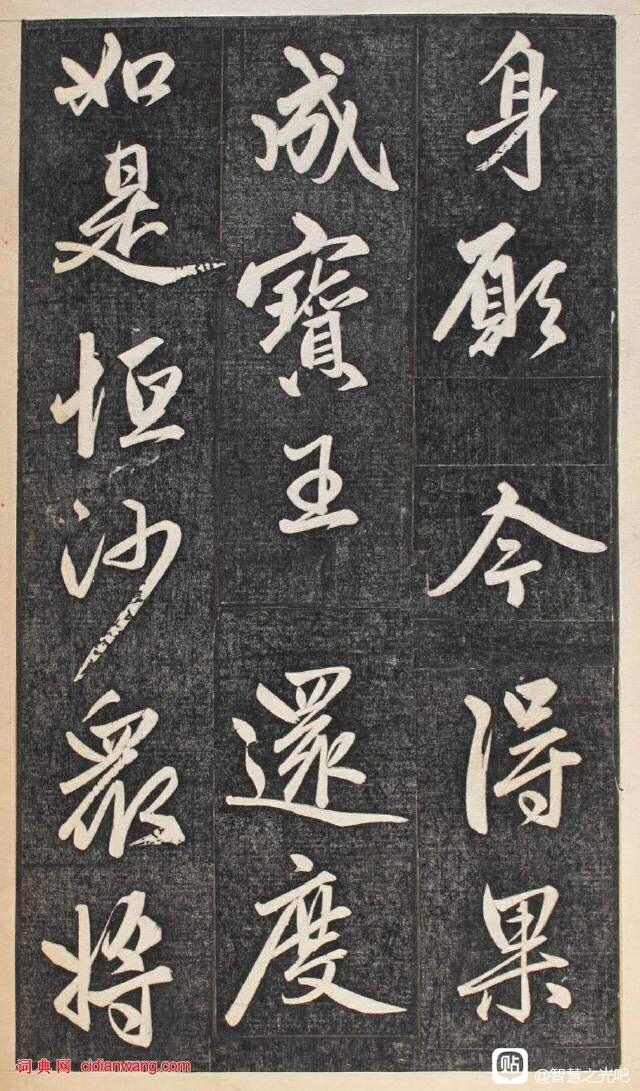 身願今得果
成寶王還度
如是恒沙衆將
词典网 cidianwang.com
贴 @智慧之光吧